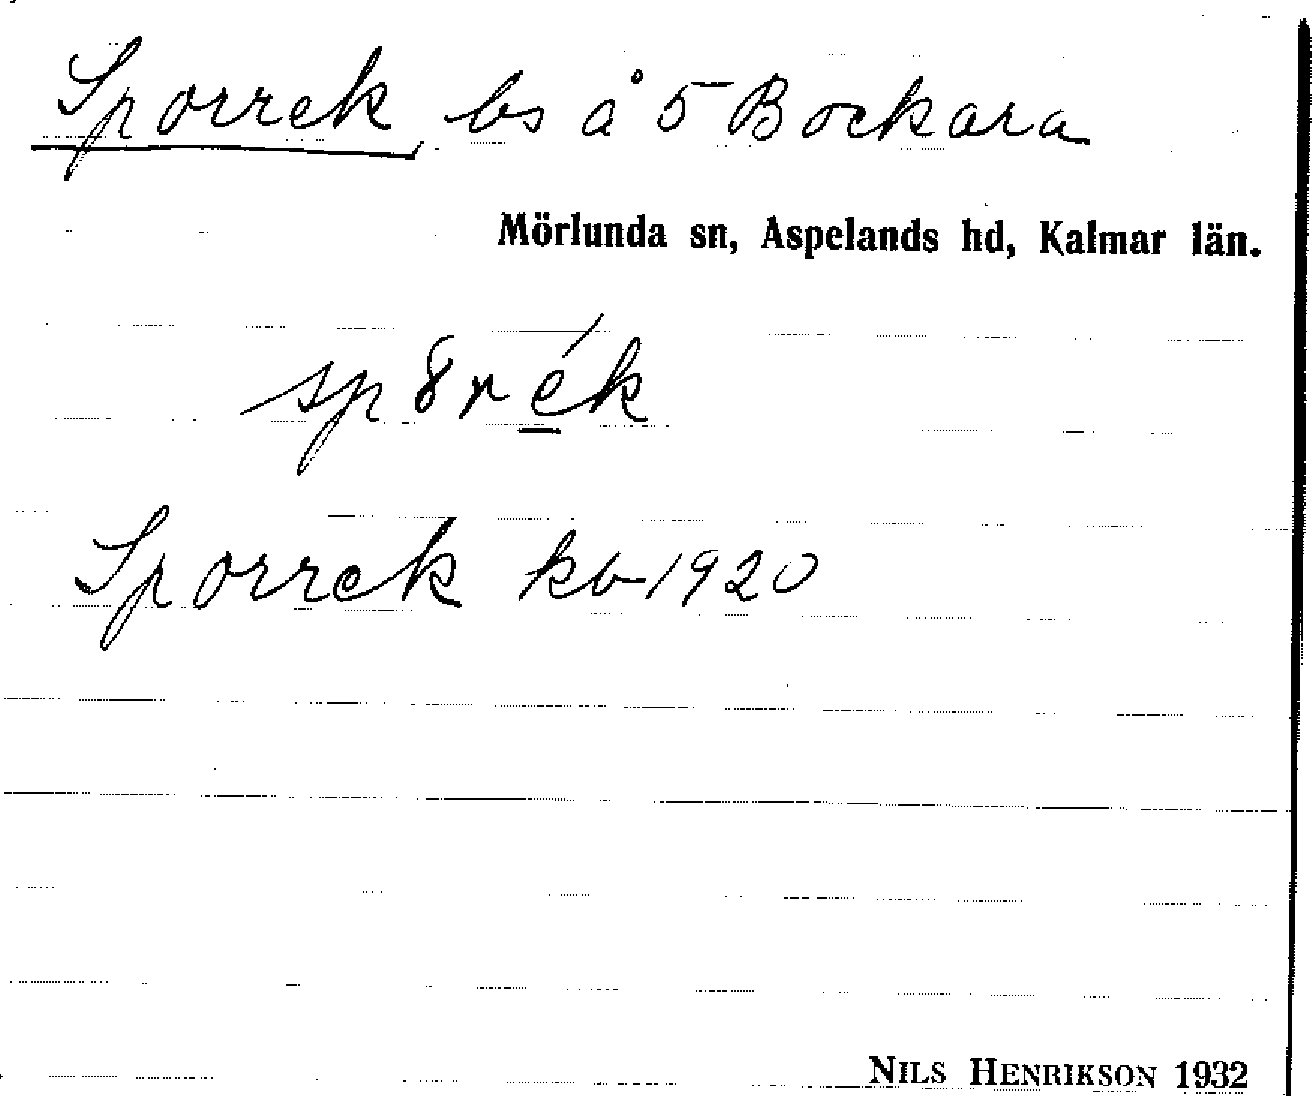 Sporrek bs å 5 Bockara
Mörlunda sn, Aspelands hd, Kalmar län.
Sporrek kb 1920
NILS HENRIKSON 1932